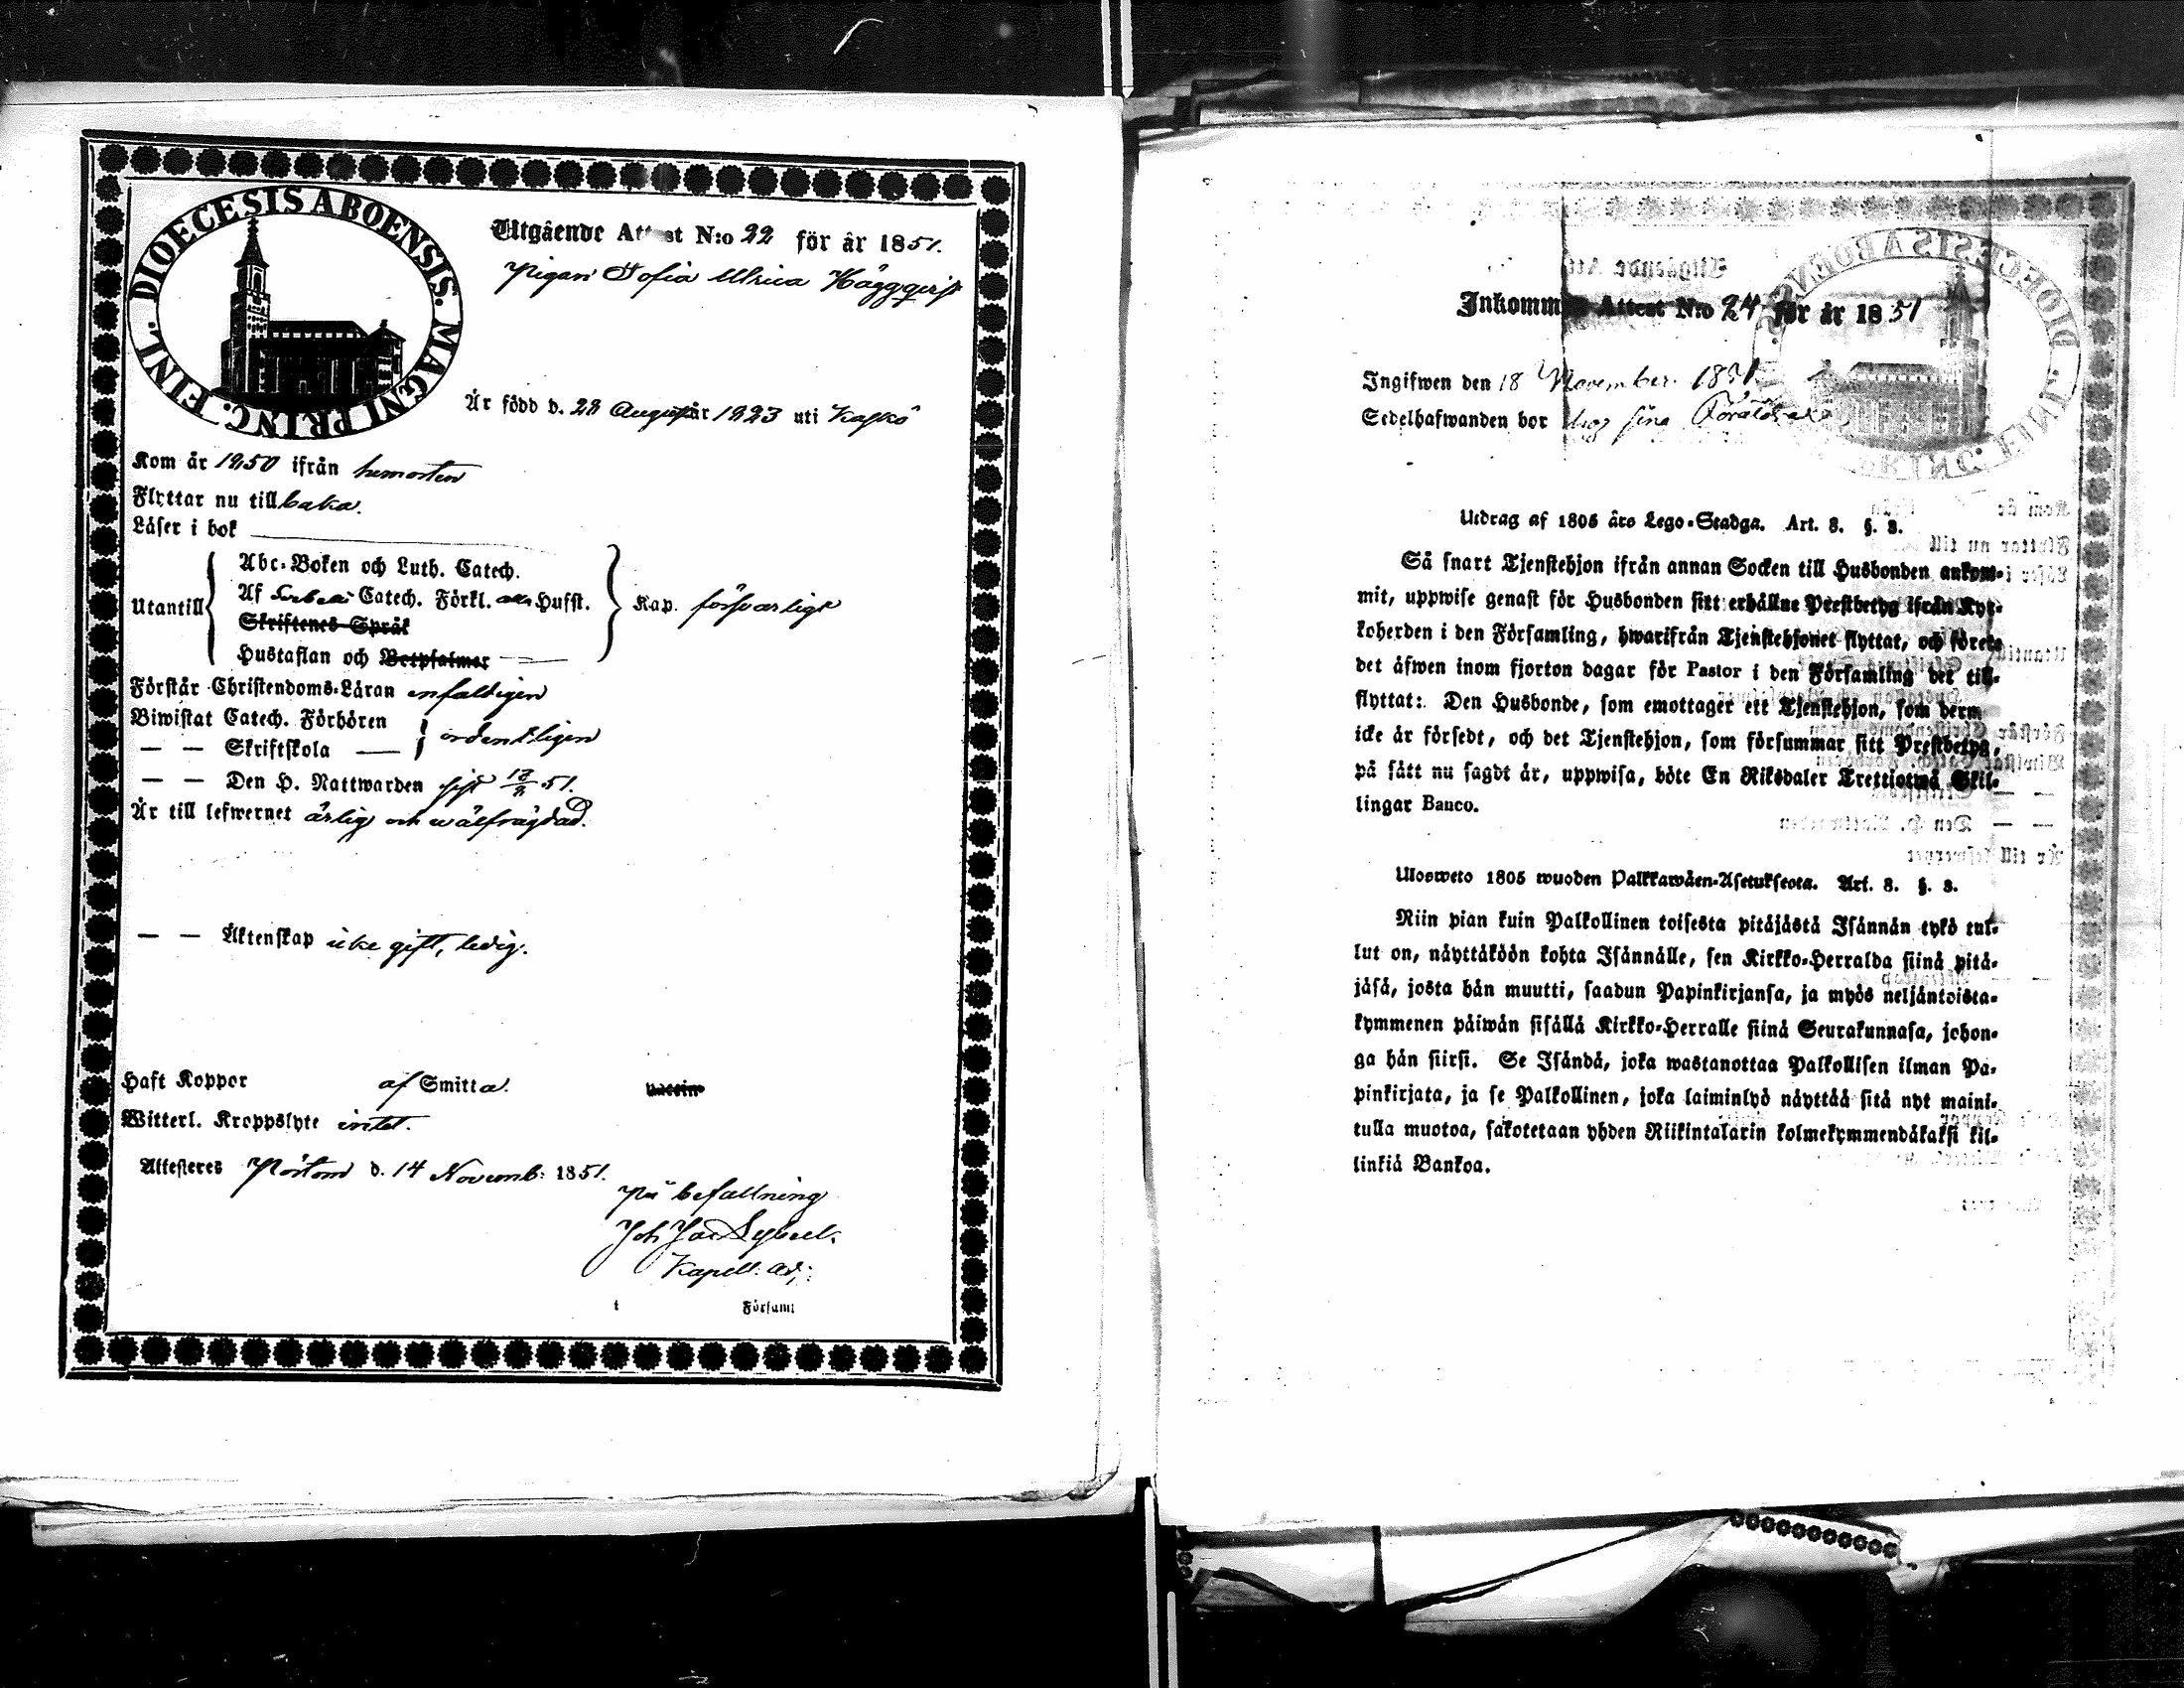 DIOECESIS ABOENSIS. MAGNI PRINC. FINL.
Utgående Attest N:o 22 för år 1851.
Pigan Sofia Ulrica Häggqvist
Är född d. 28 August år 1823 uti Kaskö
Kom år 1850 ifrån hemorten
Flyttar nu tillbaka.
Läser i bok
Abc-Boken och Luth. Catech.
Af Svebelii Catech. Förkl. Hufst.
Utantill
Kap. försvarligt
Skriftenes Språk
Hustaflan och Botpsalmer
Förstår Christendoms-Läran enfaldigen
Biwistat Catech. Förhören
— — Skriftskola — ordentligen
— — Den H. Nattwarden sist 51.
Är till lefwernet ärlig och wälfrägdad.
— — Äktenskap icke gift, ledig.
Haft Koppor af Smitta. Vaccin
Witterl. Kroppslyte intet.
Attesteras Pörtom d. 14 Novemb: 1851.
På befallning
Joh Jac Sybeck.
Kapell: adj:
Församl
Inkommen Attest N:o 24 för år 1851
Ingifwen den 18 November 1851
Sedelhafwanden bor hos sina Föräldrar
Utdrag af 1805 års Lego-Stadga. Art. 8. §. 3.
Så snart Tjenstehjon ifrån annan Socken till Husbonden ankom-
mit, uppwise genast för Husbonden sitt erhållne Prestbetyg ifrån Kyr-
koherden i den Församling, hwarifrån Tjenstehjonet flyttat, och förete
det äfwen inom fjorton dagar för Pastor i den Församling det till-
flyttat: Den Husbonde, som emottager ett Tjenstehjon, som derm
icke är försedt, och det Tjenstehjon, som försummar sitt Prestbetyg,
på sätt nu sagdt är, uppwisa, böte En Riksdaler Trettiotwå Skil-
lingar Banco.
Ulosweto 1805 wuoden Palkkawäen-Asetuksesta. Art. 8. §. 3.
Niin pian kuin Palkollinen toisesta pitäjästä Isännän tykö tul-
lut on, näyttäköön kohta Isännälle, sen Kirkko-Herralda siinä pitä-
jäsä, josta hän muutti, saadun Papinkirjansa, ja myös neljäntoista-
kymmenen päiwän sisällä Kirkko-Herralle siinä Seurakunnasa, johon-
ga hän siirsi. Se Isändä, joka wastanottaa Palkollisen ilman Pa-
pinkirjata, ja se Palkollinen, joka laiminlyö näyttää sitä nyt maini-
tulla muotoa, sakotetaan yhden Riikintalarin kolmekymmendäkaksi kil-
linkiä Bankoa.